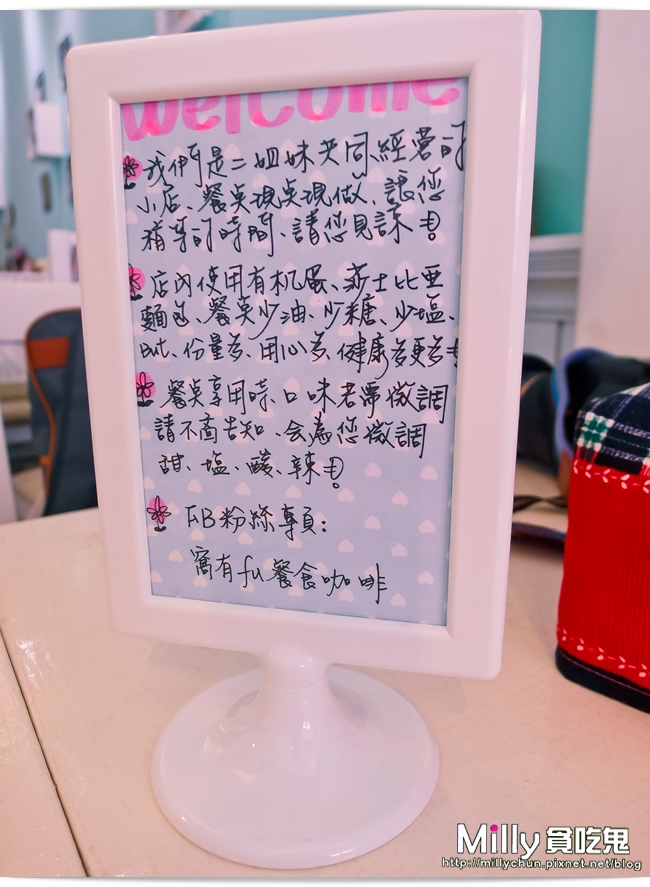 welcome
我們是二姐妹共同、經營的
小店、餐桌現桌現做、讓您
稍等的時間、請您見諒
店內使用有机蛋、莎士比亞
麵包、餐桌少油、少糖、少塩、
but、份量多、用心多、健康多更多
餐桌享用時、口味若需微調
請不啇告知、会為您微調
甜、塩、酸、辣
FB粉絲專頁：
窩有fu餐食咖啡
Milly貪吃鬼
http://millychun.pixnet.net/blog